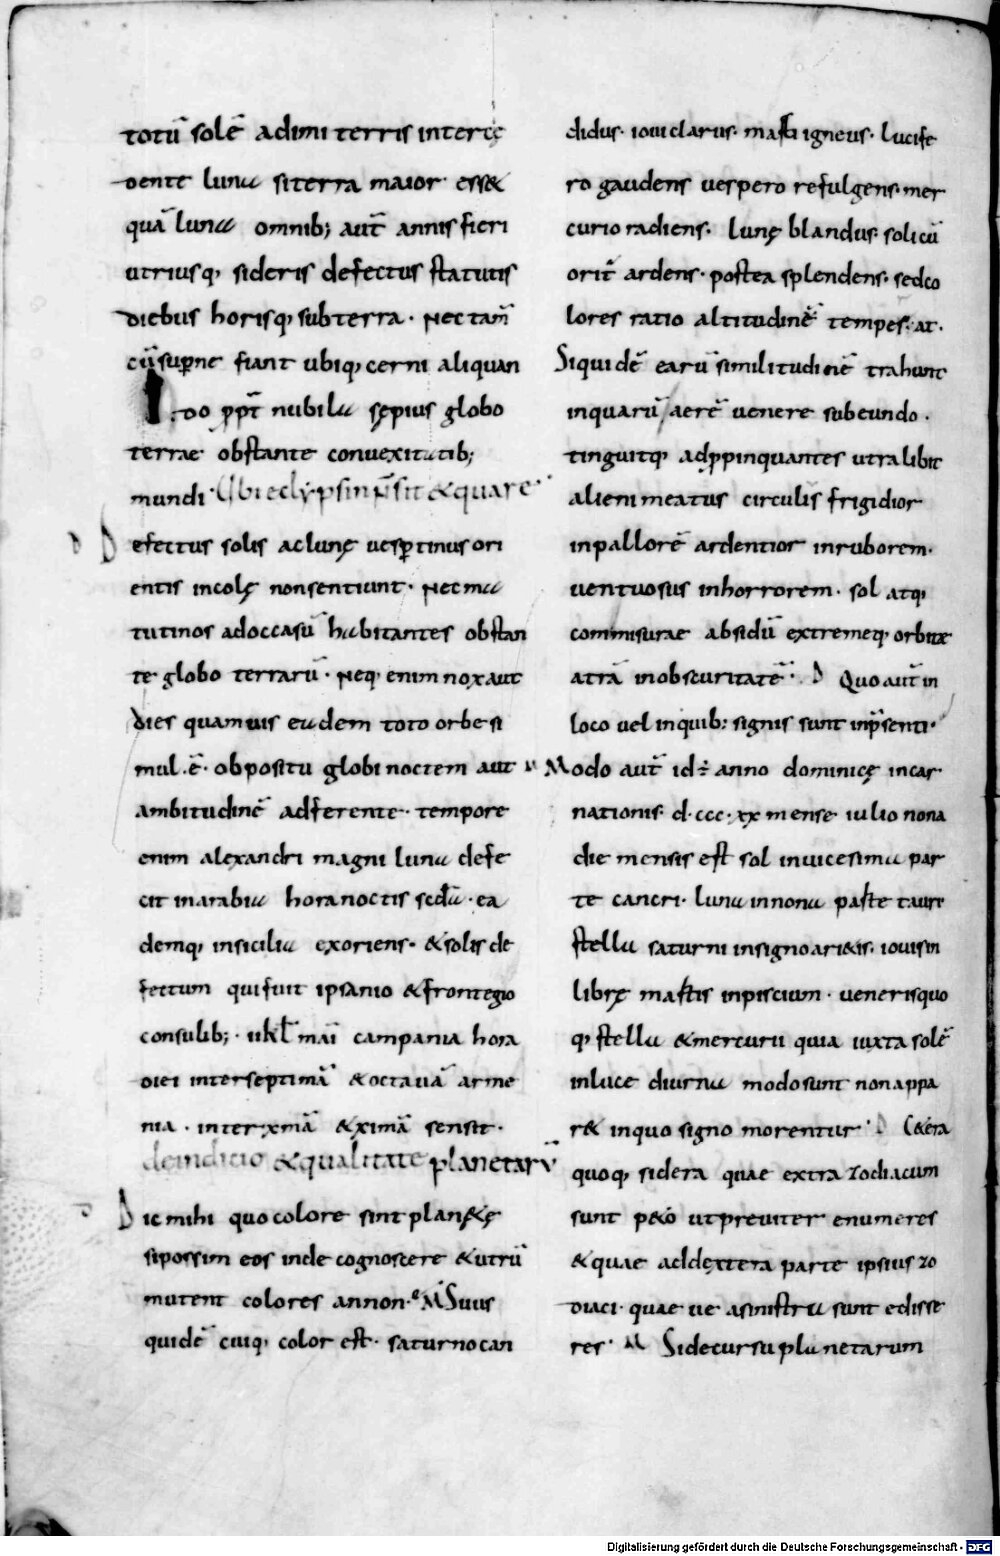 totū solē adimi terris interce
dente luna si terra maior ess&
quā luna omnib; aut̄ annis fieri
utriusq; sideris defectus statutis
diebus horisq; subterra · Nec tam̄
cū superne fiant ubiq; cerni aliquan
do ꝓpt̄ nubila sępius globo
terrae obstante conuexitatib;
mundi · Ubi eclypsin p̄sit & quare
Defectus solis ac lunę uesꝑtinus ori
entis incolę non sentiunt · Nec ma
tutinos ad occasū habitantes obstan
te globo terrarū · Neq; enim nox aut
dies quamuis eadem toto orbe si
mul · ē · obpositu globi noctem aut
ambitudinē adferente · tempore
enim alexandri magni luna defe
cit in arabia hora noctis scd̄a · ea
demq; in sicilia exoriens · & solis de
fectum qui fuit ipsanio & frontegio
consulib; · ii kl̄ mai campania hora
diei inter septimā & octauā arme
nia · inter xmā & ximā sensit ·
de indicio & qualitate planetarū
Dic mihi quo colore sint plan&ę
si possim eos inde cognoscere & utrū
mutent colores annon · M̄ Suus
quidē cuiq; color est · saturno can
didus · ioui clarus · marti igneus · lucife
ro gaudens uespero refulgens · mer
curio radiens · lunę blandus · soli cū
orit̄ ardens · postea splendens · sed co
lores ratio altitudinē temperat ·
Siquidē earū similitudinē trahunt
in quarū aerē uenere subeundo ·
tinguitq; adꝓpinquantes utralibet
alieni meatus circulis frigidior
in pallorē ardentior in ruborem ·
uentuosus in horrorem · sol atq;
commisurae absidū extremeq; orbitae
atrā in obscuritatē · D Quo aut̄ in
loco uel in quib; signis sunt inp̄senti ·
Modo aut̄ id ÷ anno dominicę incar
nationis · d · ccc · xx mense iulio nona
die mensis est sol in uicesima par
te cancri · luna in nona parte tauri
stella saturni in signo ari&is · iouis in
librę martis in piscium · ueneris quo
q; stella & mercurii quia iuxta solē
in luce diurna modo sunt non appa
r& in quo signo morentur · D C&era
quoq; sidera quae extra zodiacum
sunt p&o ut preuiter enumeres
& quae ad dexterā partē ipsius zo
diaci · quae ue a sinistra sunt edisse
res · M Si de cursu planetarum
Digitalisierung gefördert durch die Deutsche Forschungsgemeinschaft - DFG